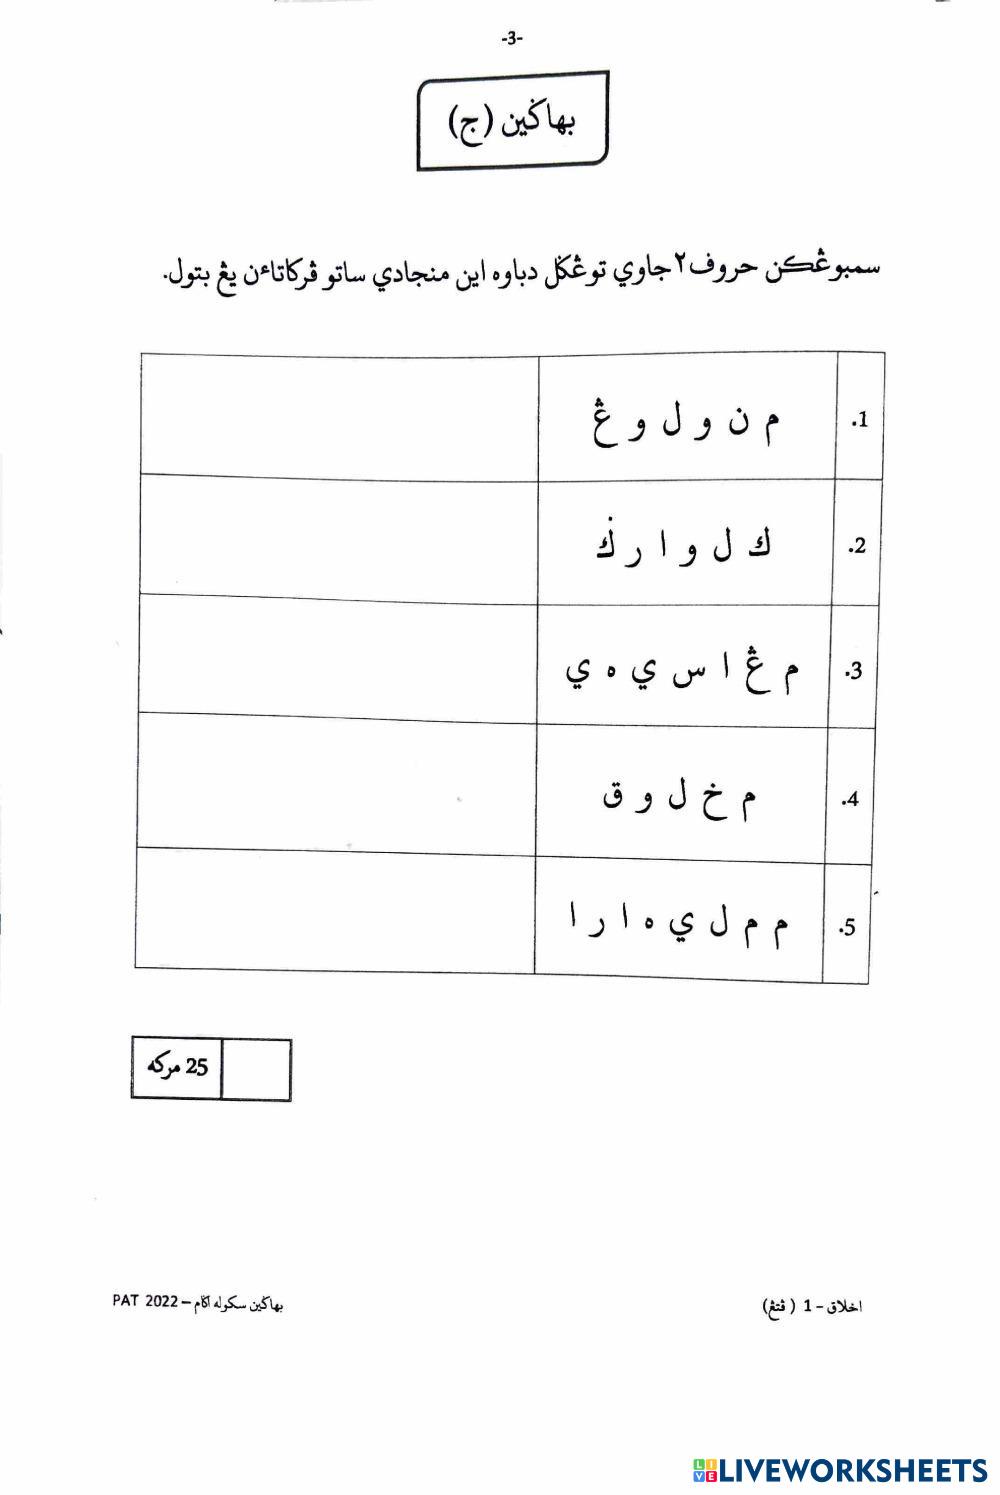 -3-
بهاݢين (ج)
سمبوڠكن حروف٢ جاوي توڠݢل دباوه اين منجادي ساتو ڤركاتاءن يڠ بتول.
1. م ن و ل و ڠ
2. ك ل و ا ر ݢ
3. م ڠ ا س ي ه ي
4. م خ ل و ق
5. م م ل ي ه ا ر ا
25 مركه
اخلاق - 1 ( ڤتڠ)
بهاݢين سكوله اݢام – PAT 2022
LIVEWORKSHEETS